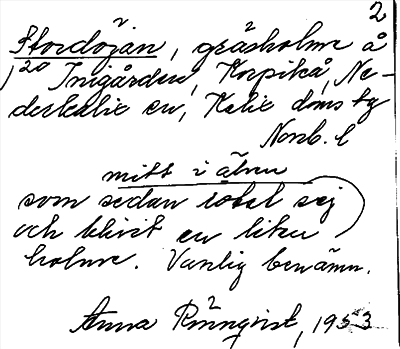 2
Stordöjan, gräsholme å
120 Inigården, Korpikå, Ne-
derkalix sn, Kalix doms bg
Norrb. l
mitt i älven
som sedan rotat sej
och blivit en liten
holme. Vanlig benämn.
Anna Rönnqvist, 1953